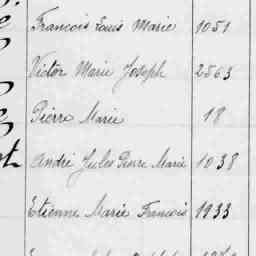 François Louis Marie 1051
Victor Marie Joseph 2563
Pierre Marie 18
André Jules Pierre Marie 1038
Etienne Marie François 1933